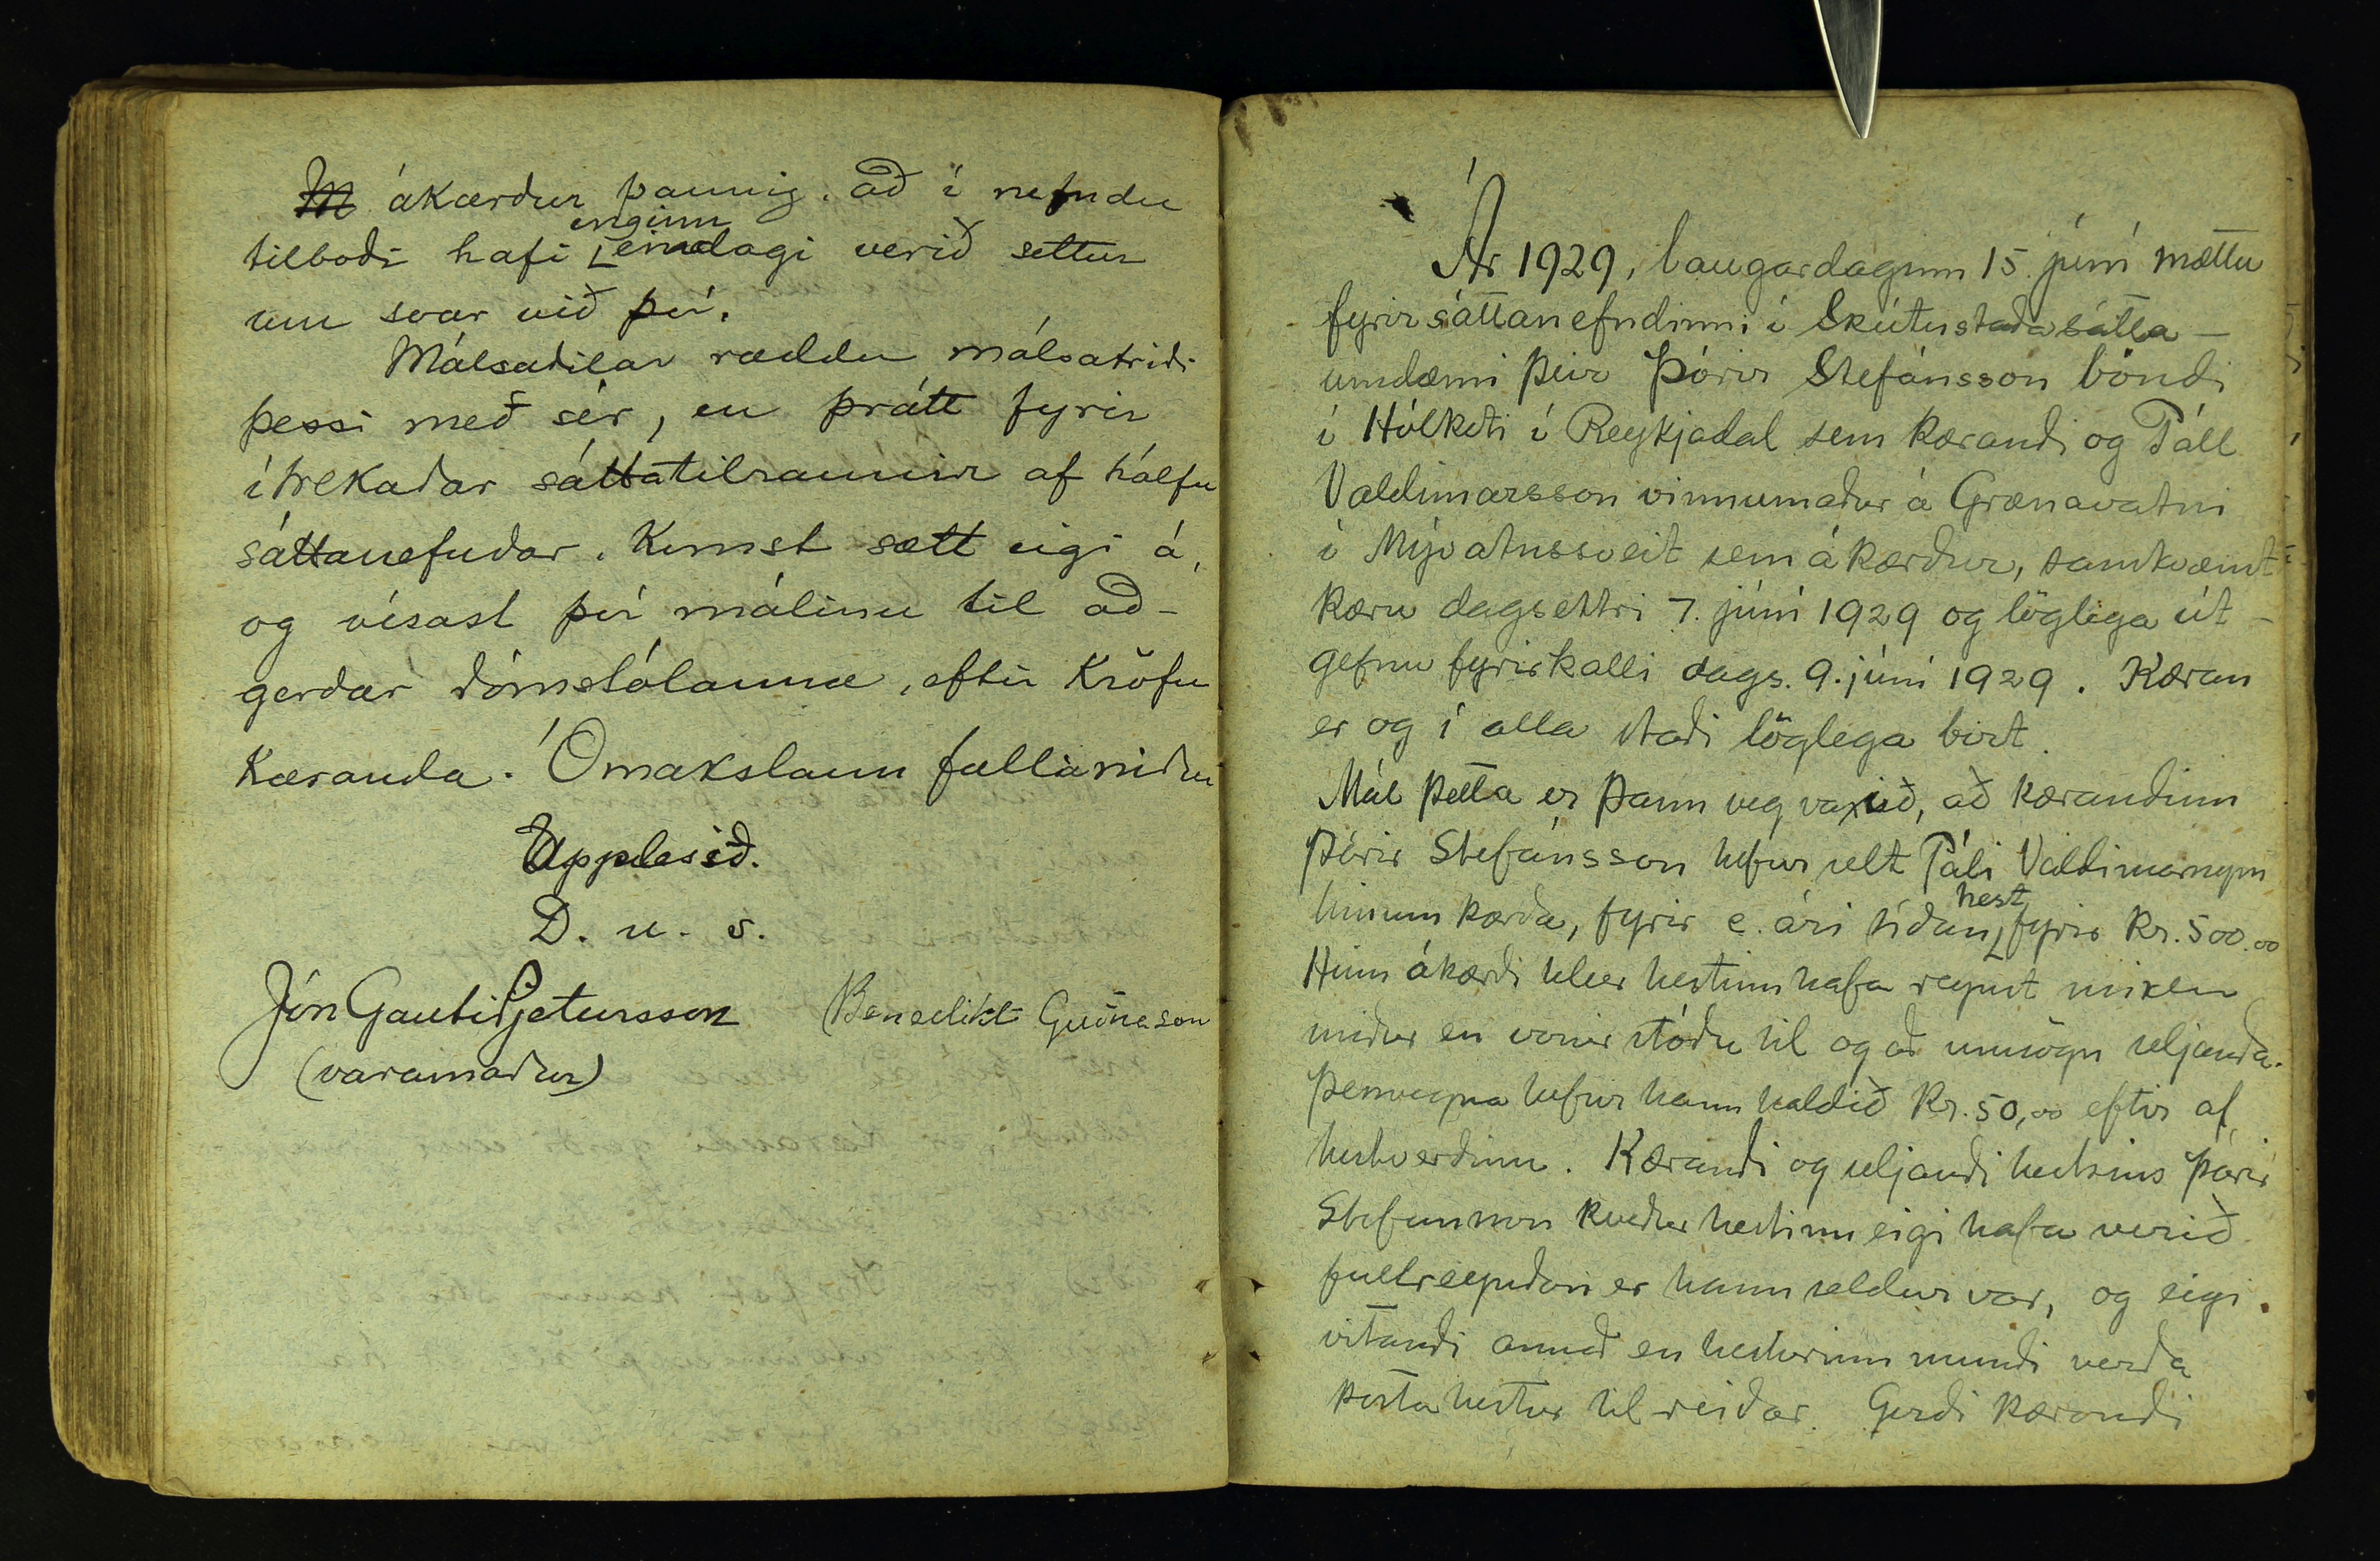 M ákærður þannig. að í nefndu
tilboði hafi enginn eindagi verið settur
um svar við því.
Málsaðilar ræddu málsatriði
þessi með sér, en þrátt fyrir
ítrekaðar sáttatilraunir af hálfu
sáttanefndar. Kemst sætt eigi á,
og vísast því málinu til að-
gerðar dómstólanna, eftir kröfu
Kæranda. Ómakslaun falla niður
Upplesið.
D. u. s.
Jón Gauti Pjetursson Benedikt Guðnason
(varamaður)
Ár 1929, laugardaginn 15. júní mættu
fyrir sáttanefndinni í Skútustaðasátta-
umdæmi þeir Þórir Stefánsson bóndi
í Hólkoti í Reykjadal sem kærandi og Páll
Valdimarsson vinnumaður á Grænavatni
í Mývatnssveit sem ákærður, samkvæmt
kæru dagsettri 7. júní 1929 og löglega út-
gefnu fyrirkalli dags. 9. júní 1929. Kæran
er og í alla staði löglega birt.
Mál þetta er þann veg vaxið, að kærandinn
Þórir Stefánsson hefur selt Páli Valdimarssyni
hinum kærða, fyrir e. ári síðan, hest fyrir kr. 500.00
Hinn ákærði telur hestinn hafa reynst miklu
miður en vonir stóðu til og að umsögn seljanda.
Þessvegna hefur hann haldið kr. 50,00 eftir af
hestverðinu. Kærandi og seljandi hestsins Þórir
Stefánsson kveður hestinn eigi hafa verið
fullreyndan er hann seldur var, og eigi
vitandi annað en hesturinn mundi verða
þesta hestur til reiðar. Gerði kærandi